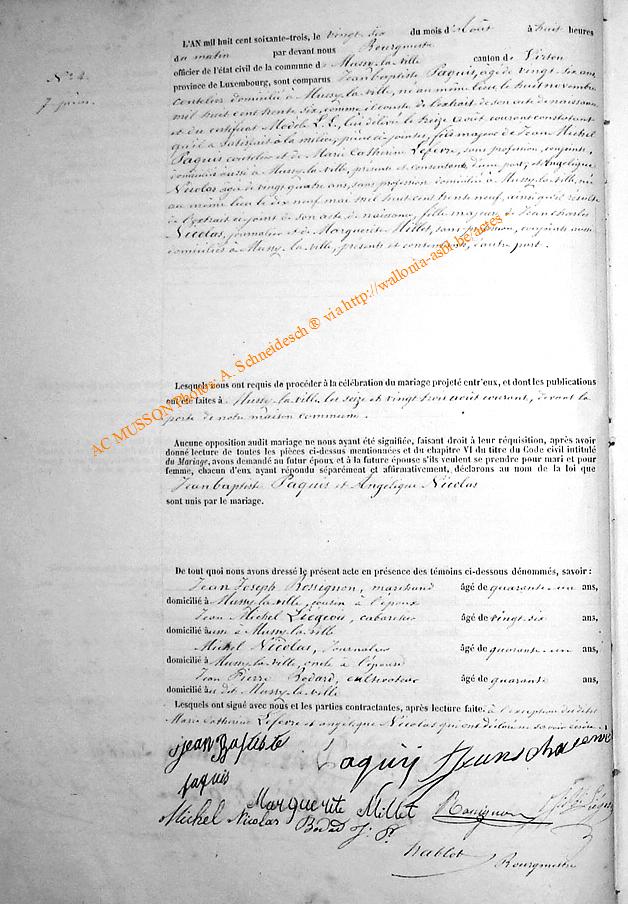 L'AN mil huit cent soixante-trois, le vingt six du mois d'Août à huit heures
du matin par devant nous Bourgmestre
officier de l'état civil de la commune de Mussy-la-ville canton de Virton
Nº 4.
province de Luxembourg, sont comparus Jean baptiste Paquis, âgé de vingt six ans
domicilié à Mussy-la-ville, né au même lieu le huit novembre
mil huit cent trente six, comme il conste de l'extrait de son acte de naissance
et du certificat Modèle L.L., lui délivré le treize août courant constatant
qu'il a satisfait à la milice, pièces ci-jointes, fils majeur de Jean Michel
Paquis et de Marie Catherine Lefevre, sans profession, conjoints,
domiciliés aussi à Mussy-la-ville, présents et consentants d'une part; et Angelique
Nicolas âgée de vingt quatre ans, sans profession domiciliée à Mussy-la-ville, née
au même lieu le dix neuf mai mil huit cent trente neuf, ainsi qu'il résulte
de l'extrait ci-joint de son acte de naissance, fille majeure de Jean charles
Nicolas, journalier et de Marguerite Millet, sans profession, conjoints aussi
domiciliés à Mussy-la-ville, présents et consentants, d'autre part.
AC MUSSON Photos: A. Schneidesch ® via http://wallonia-asbl.be/actes
Lesquels nous ont requis de procéder à la célébration du mariage projeté entr'eux, et dont les publications
ont été faites à Mussy-la-ville les seize et vingt trois août courant, devant la
porte de notre maison commune.
Aucune opposition audit mariage ne nous ayant été signifiée, faisant droit à leur réquisition, après avoir
donné lecture de toutes les pièces ci-dessus mentionnées et du chapitre VI du titre du Code civil intitulé
du Mariage, avons demandé au futur époux et à la future épouse s'ils veulent se prendre pour mari et pour
femme, chacun d'eux ayant répondu séparément et affirmativement, déclarons au nom de la loi que
Jean baptiste Paquis et Angelique Nicolas
sont unis par le mariage.
De tout quoi nous avons dressé le présent acte en présence des témoins ci-dessous dénommés, savoir :
Jean Joseph Rossignon, marchand âgé de quarante un ans,
domicilié à Mussy-la-ville, cousin à l'époux
Jean Michel Liégeois, cabaretier âgé de vingt six ans,
domicilié à Mussy-la-ville
Michel Nicolas, Journalier âgé de quarante un ans,
domicilié à Mussy-la-ville, oncle à l'épouse
Jean Pierre Bodard, cultivateur âgé de quarante ans,
domicilié à Mussy-la-ville
Lesquels ont signé avec nous et les parties contractantes, après lecture faite. à l'exception du dit
Marie Catherine Lefevre et angelique Nicolas qui ont déclaré ne savoir écrire.
jean Baptiste
paquis
Paquis
Michel Nicolas Marguerite Millet Rossignon
Bodard J. P.
hablot Bourgmestre